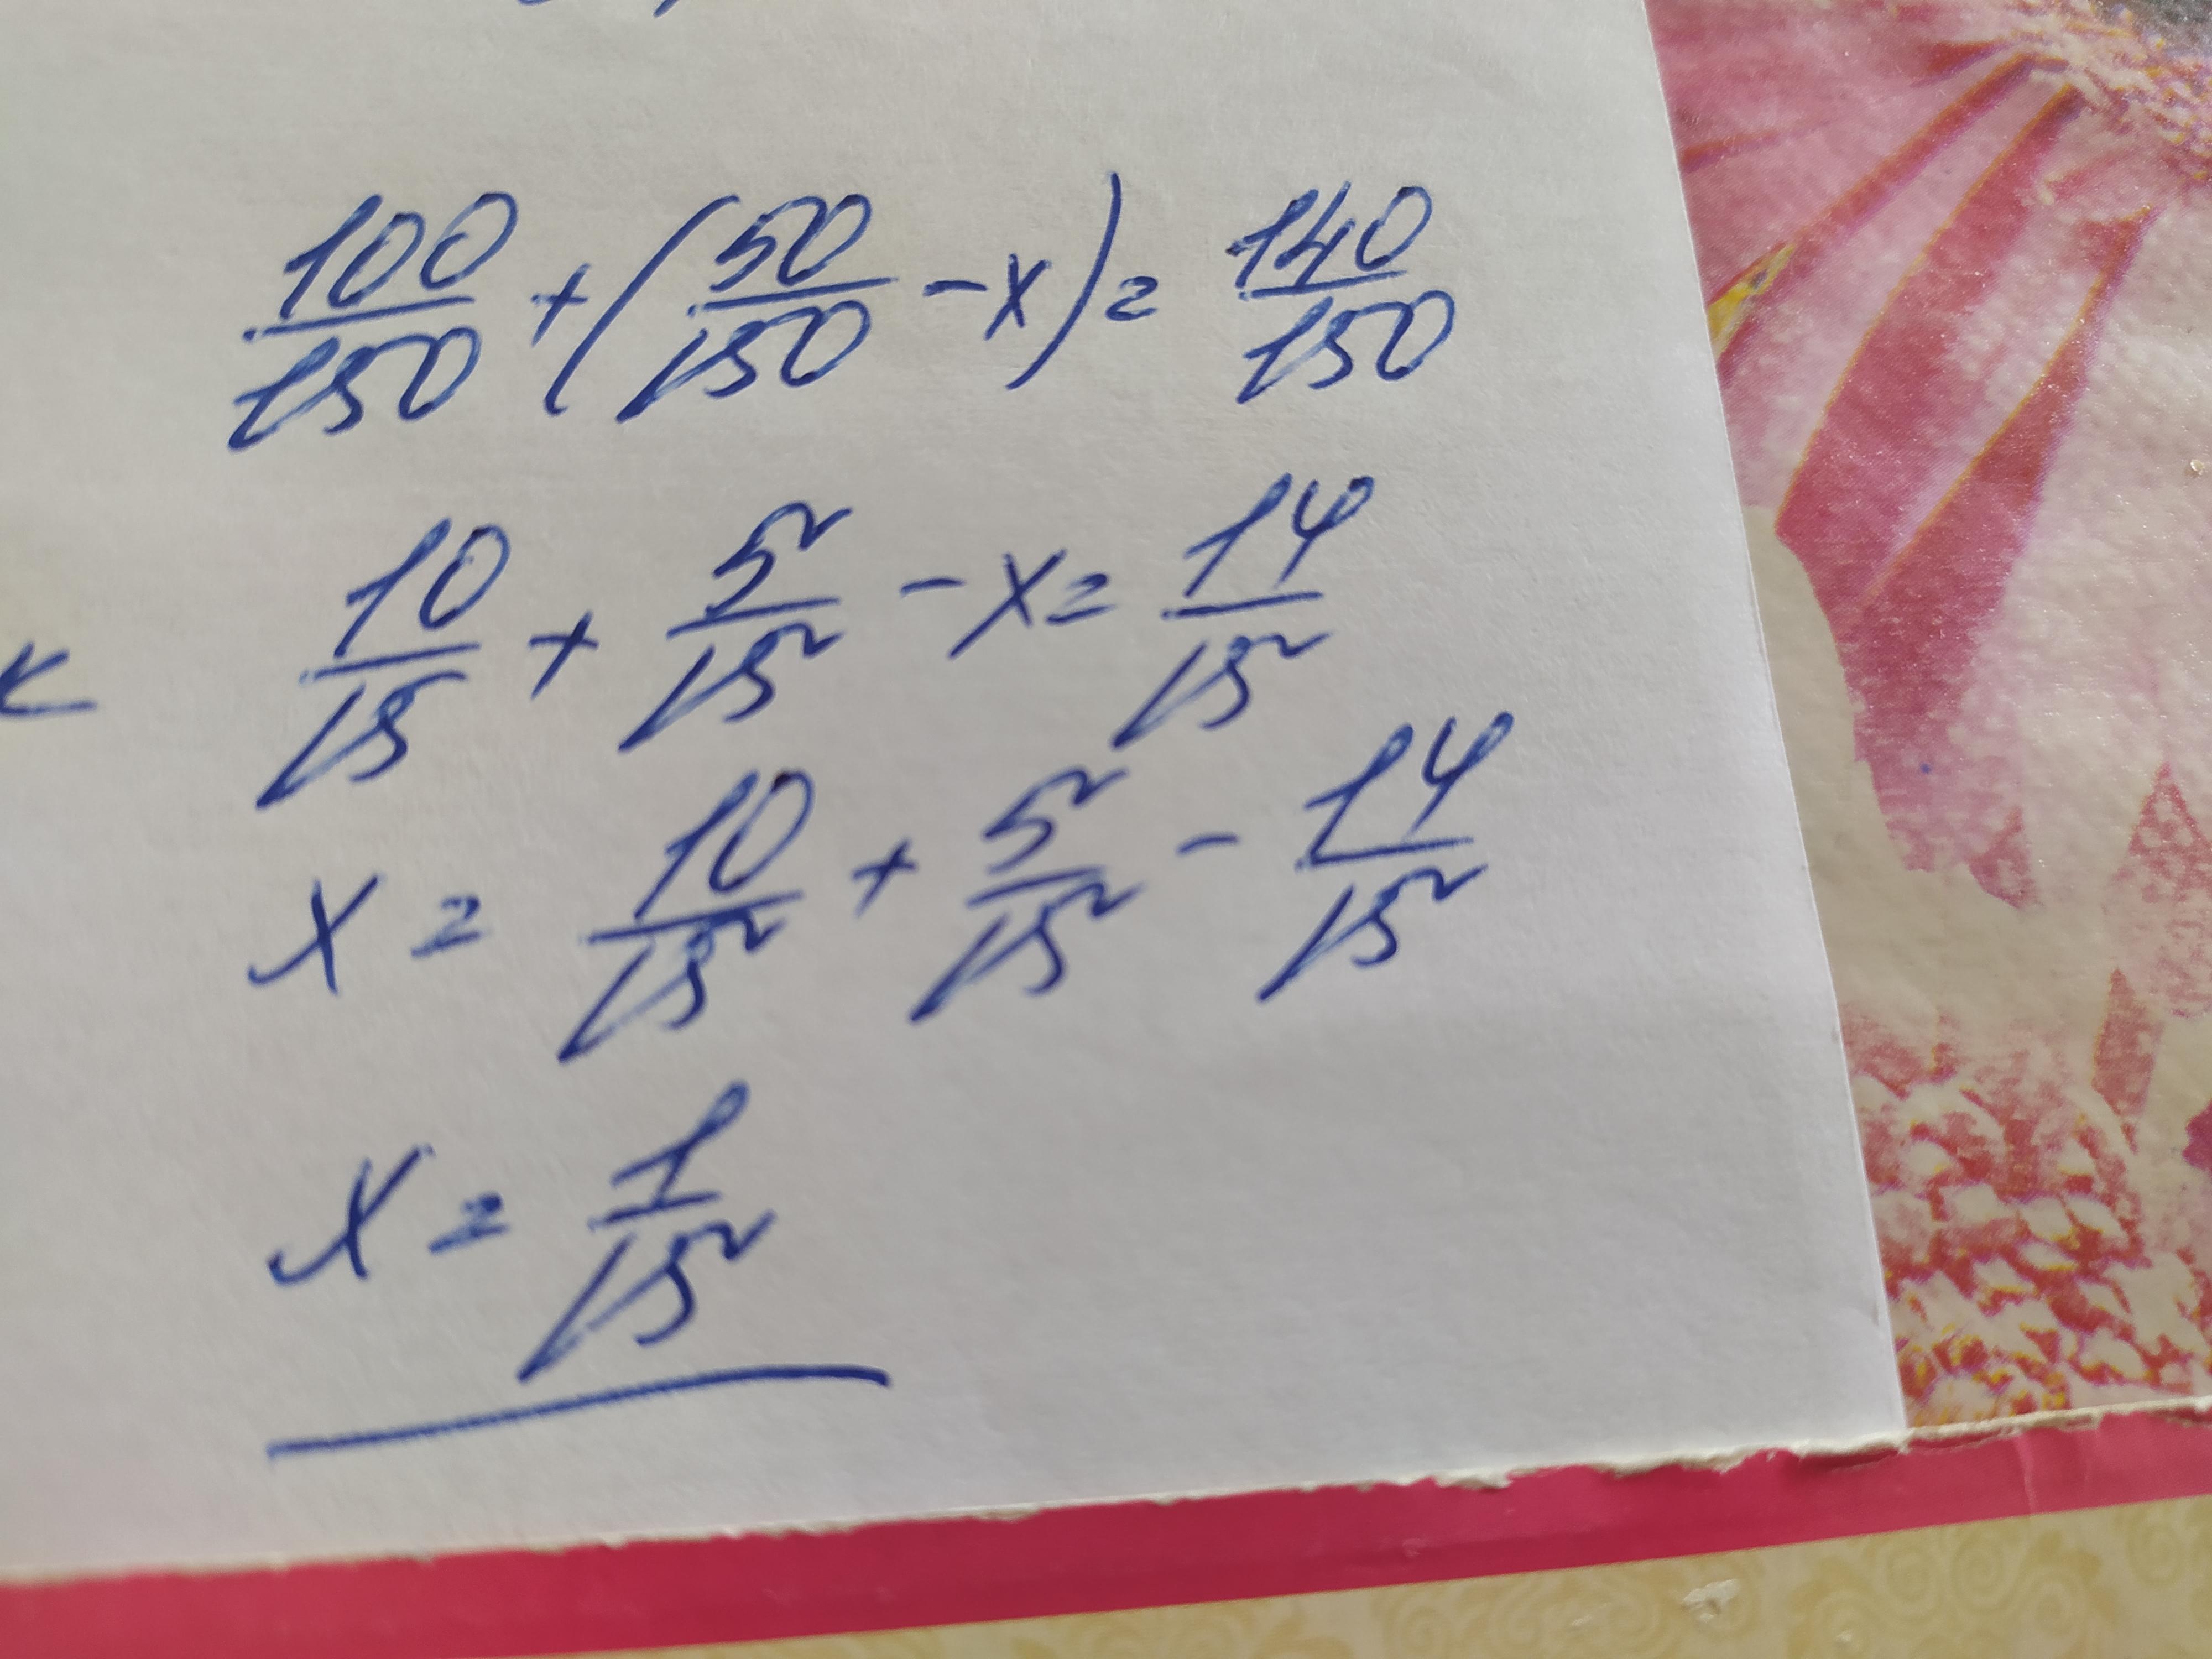 100/150 + (50/150 - x) = 140/150
10/15 + 5/15 - x = 14/15
x = 10/15 + 5/15 - 14/15
x = 1/15